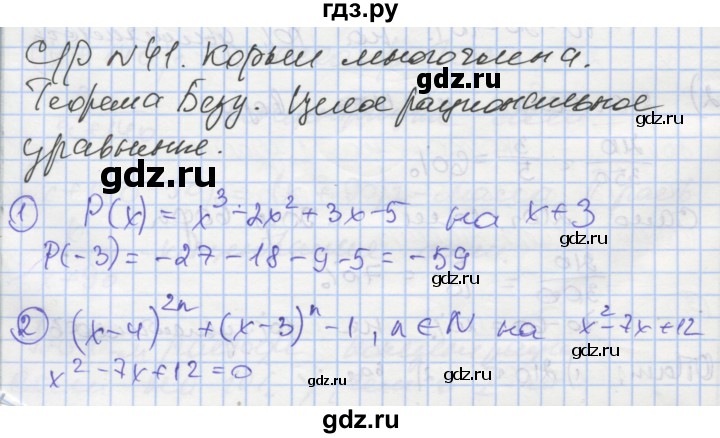 гдз.ру
С/р №41. Корни многочлена.
Теорема Безу. Целое рациональное
уравнение.
gdz.ru gdz.ru
1 P(x) = x³ - 2x² + 3x - 5 на x + 3
P(-3) = -27 - 18 - 9 - 5 = -59
gdz.ru gdz.ru
2 (x-4)²ⁿ + (x-3)ⁿ - 1, n ∈ N на x² - 7x + 12
x² - 7x + 12 = 0
gdz.ru
gdz.ru